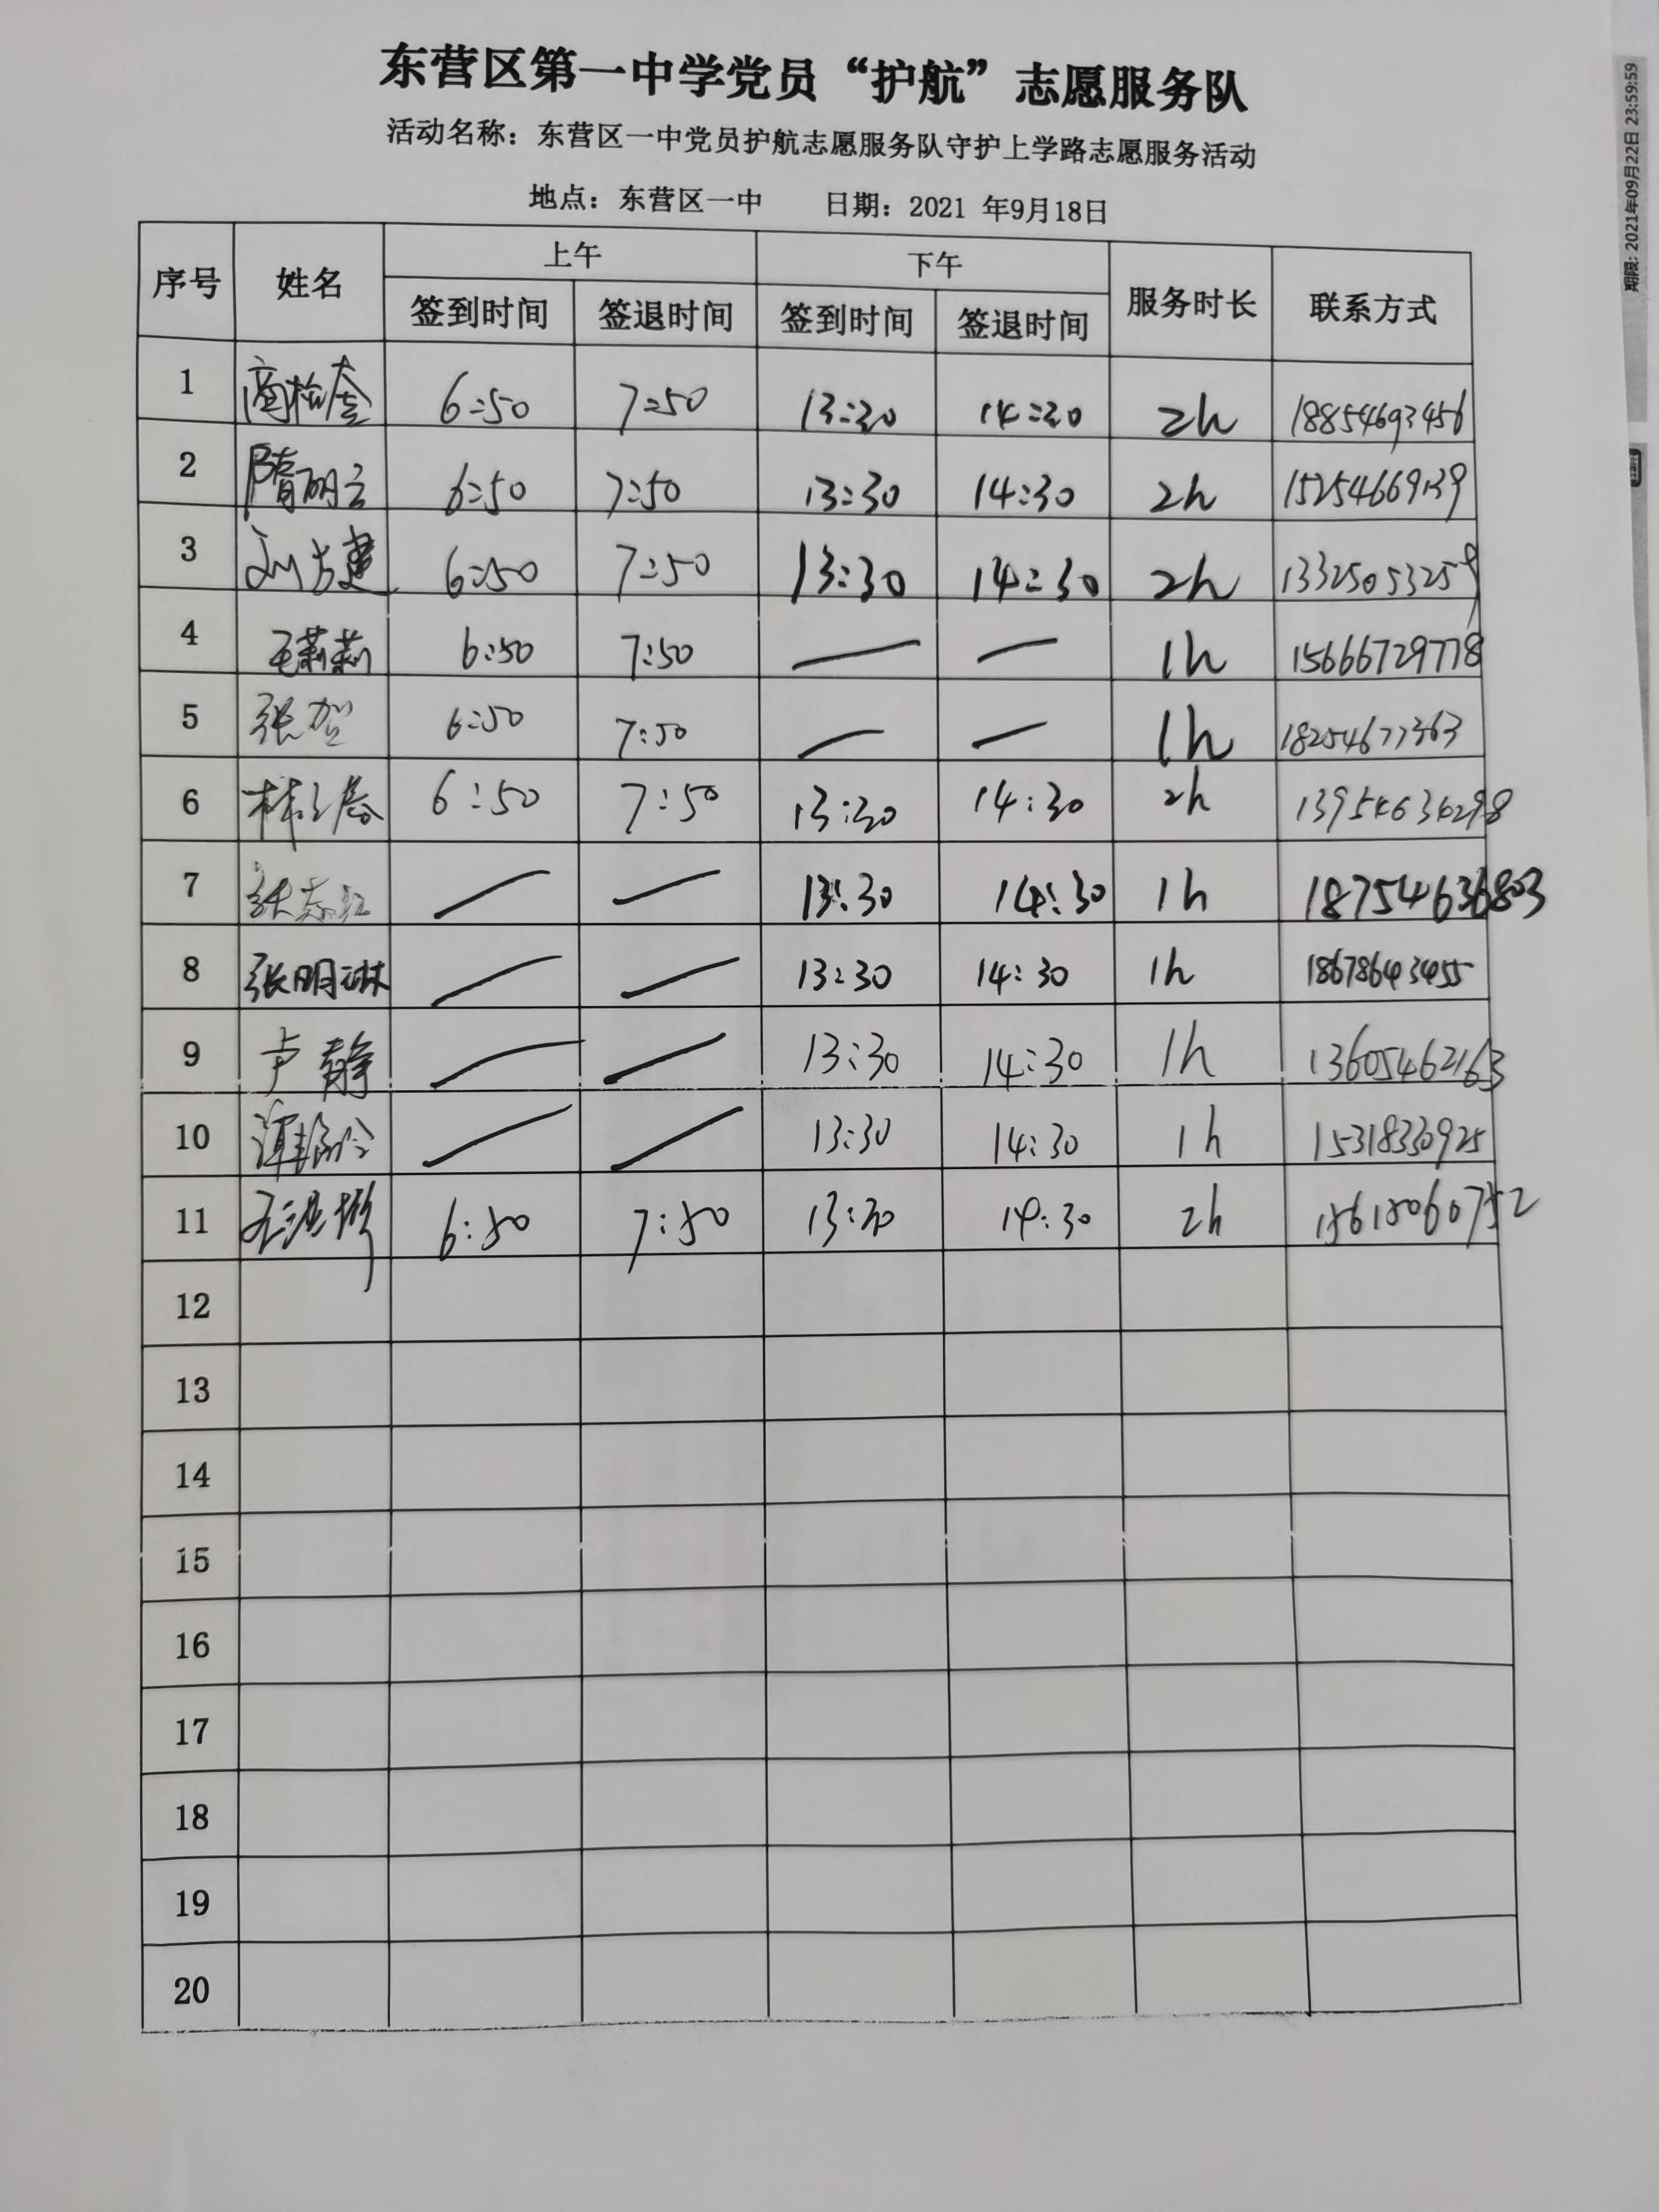 东营区第一中学党员“护航”志愿服务队
活动名称：东营区一中党员护航志愿服务队守护上学路志愿服务活动
地点：东营区一中 日期：2021 年9月18日
序号 姓名 上午 下午 服务时长 联系方式
签到时间 签退时间 签到时间 签退时间
1 6:50 7:50 13:30 14:30 2h 18854693456
2 隋丽云 6:50 7:50 13:30 14:30 2h 15254669139
3 6:50 7:50 13:30 14:30 2h 13325053259
4 毛莉莉 6:50 7:50 — — 1h 15666729778
5 张贺 6:50 7:50 — — 1h 18254677363
6 6:50 7:50 13:30 14:30 2h 13954634298
7 — — 13:30 14:30 1h 18754636803
8 张明琳 — — 13:30 14:30 1h 18678643455
9 卢静 — — 13:30 14:30 1h 13605462163
10 — — 13:30 14:30 1h 15318330925
11 6:50 7:50 13:30 14:30 2h
12
13
14
15
16
17
18
19
20
期限: 2021年09月22日 23:59:59